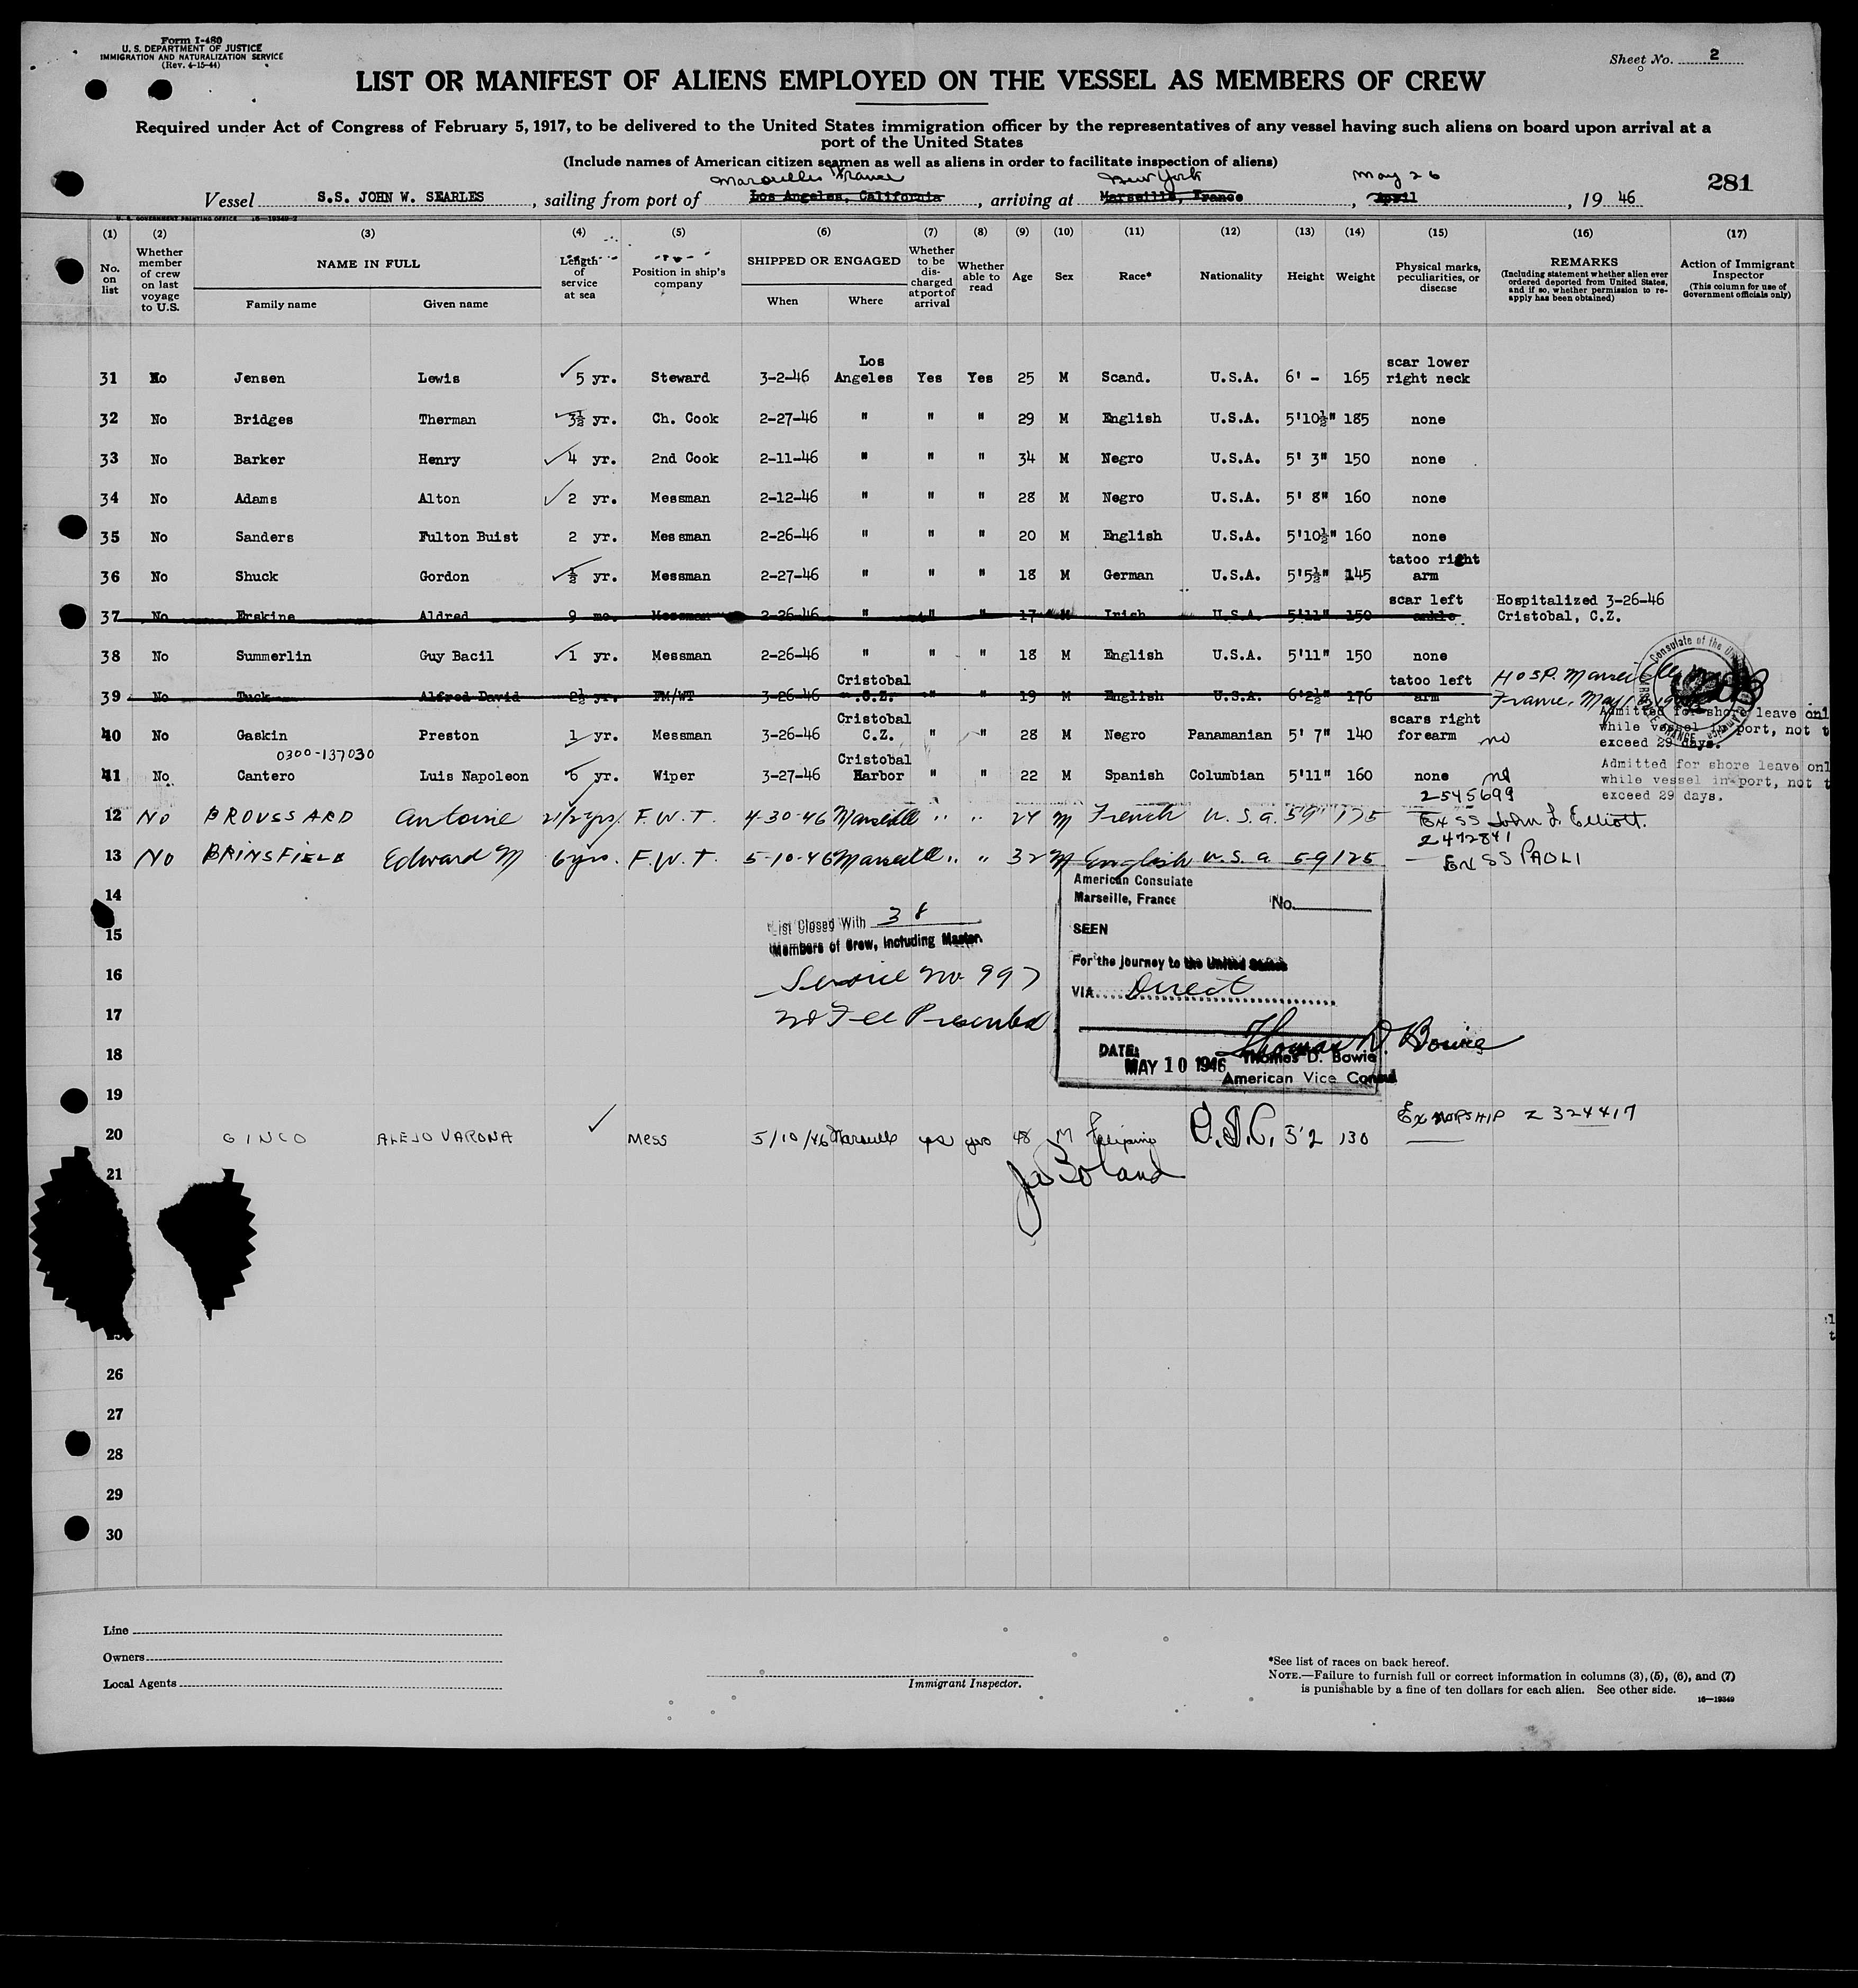 Form I-480
U. S. DEPARTMENT OF JUSTICE
IMMIGRATION AND NATURALIZATION SERVICE
(Rev. 4-15-44)
Sheet No. 2
LIST OR MANIFEST OF ALIENS EMPLOYED ON THE VESSEL AS MEMBERS OF CREW
Required under Act of Congress of February 5, 1917, to be delivered to the United States immigration officer by the representatives of any vessel having such aliens on board upon arrival at a
port of the United States
(Include names of American citizen seamen as well as aliens in order to facilitate inspection of aliens)
281
Marseilles France New York May 26
Vessel S.S. JOHN W. SEARLES, sailing from port of Los Angeles, California, arriving at Marseille, France, April, 19 46
U. S. GOVERNMENT PRINTING OFFICE 16-19349-2
(1) (2) (3) (4) (5) (6) (7) (8) (9) (10) (11) (12) (13) (14) (15) (16) (17)
No. on list
Whether member of crew on last voyage to U.S.
NAME IN FULL
Family name
Given name
Length of service at sea
Position in ship's company
SHIPPED OR ENGAGED
When
Where
Whether to be discharged at port of arrival
Whether able to read
Age
Sex
Race*
Nationality
Height
Weight
Physical marks, peculiarities, or disease
REMARKS
(Including statement whether alien ever ordered deported from United States, and if so, whether permission to reapply has been obtained)
Action of Immigrant Inspector
(This column for use of Government officials only)
31 No Jensen Lewis 5 yr. Steward 3-2-46 Los Angeles Yes Yes 25 M Scand. U.S.A. 6' - 165 scar lower right neck
32 No Bridges Therman 3½ yr. Ch. Cook 2-27-46 " " " 29 M English U.S.A. 5'10½" 185 none
33 No Barker Henry 4 yr. 2nd Cook 2-11-46 " " " 34 M Negro U.S.A. 5' 3" 150 none
34 No Adams Alton 2 yr. Messman 2-12-46 " " " 28 M Negro U.S.A. 5' 8" 160 none
35 No Sanders Fulton Buist 2 yr. Messman 2-26-46 " " " 20 M English U.S.A. 5'10½" 160 none
36 No Shuck Gordon ½ yr. Messman 2-27-46 " " " 18 M German U.S.A. 5'5½" 145 tatoo right arm
37 No Erskine Aldred 9 mo. Messman 2-26-46 " " " 17 M Irish U.S.A. 5'11" 150 scar left ankle Hospitalized 3-26-46 Cristobal, C.Z.
38 No Summerlin Guy Bacil 1 yr. Messman 2-26-46 " " " 18 M English U.S.A. 5'11" 150 none
39 No Tuck Alfred David 2½ yr. FM/WT 3-26-46 Cristobal C.Z. " " 19 M English U.S.A. 6'2½" 176 tatoo left arm Hosp. Marseille France, May
40 No Gaskin Preston 1 yr. Messman 3-26-46 Cristobal C.Z. " " 28 M Negro Panamanian 5' 7" 140 scars right forearm no Admitted for shore leave onl
while vessel port, not t
exceed 29 days.
0300-137030
41 No Cantero Luis Napoleon 6 yr. Wiper 3-27-46 Cristobal Harbor " " 22 M Spanish Columbian 5'11" 160 none no Admitted for shore leave onl
while vessel in port, not t
exceed 29 days.
2545699
12 No BROUSSARD Antoine 2 1/2 yrs F.W.T. 4-30-46 Marseille " " 24 M French U.S.A. 59" 175 Ex SS John L Elliott.
2472841
13 No BRINSFIELD Edward M 6 yrs. F.W.T. 5-10-46 Marseille " " 32 M English U.S.A 5-9 125 — Ex SS PAOLI
14
15
16
17
18
19
List Closed With 38
Members of Crew, Including Master.
Service No 997
No Fee Presented
American Consulate
Marseille, France No.
SEEN
For the journey to the United States
VIA Direct
Thomas D. Bowie
DATE: MAY 10 1946
Thomas D. Bowie
American Vice Consul
20 GINCO ALEJO VARONA Mess 5/10/46 Marseille yes yes 48 M Filipino 5'2 130 Ex Z 324417
21
Boland
26
27
28
29
30
Line
Owners
Local Agents
Immigrant Inspector.
*See list of races on back hereof.
NOTE.—Failure to furnish full or correct information in columns (3), (5), (6), and (7)
is punishable by a fine of ten dollars for each alien. See other side.
16—19349